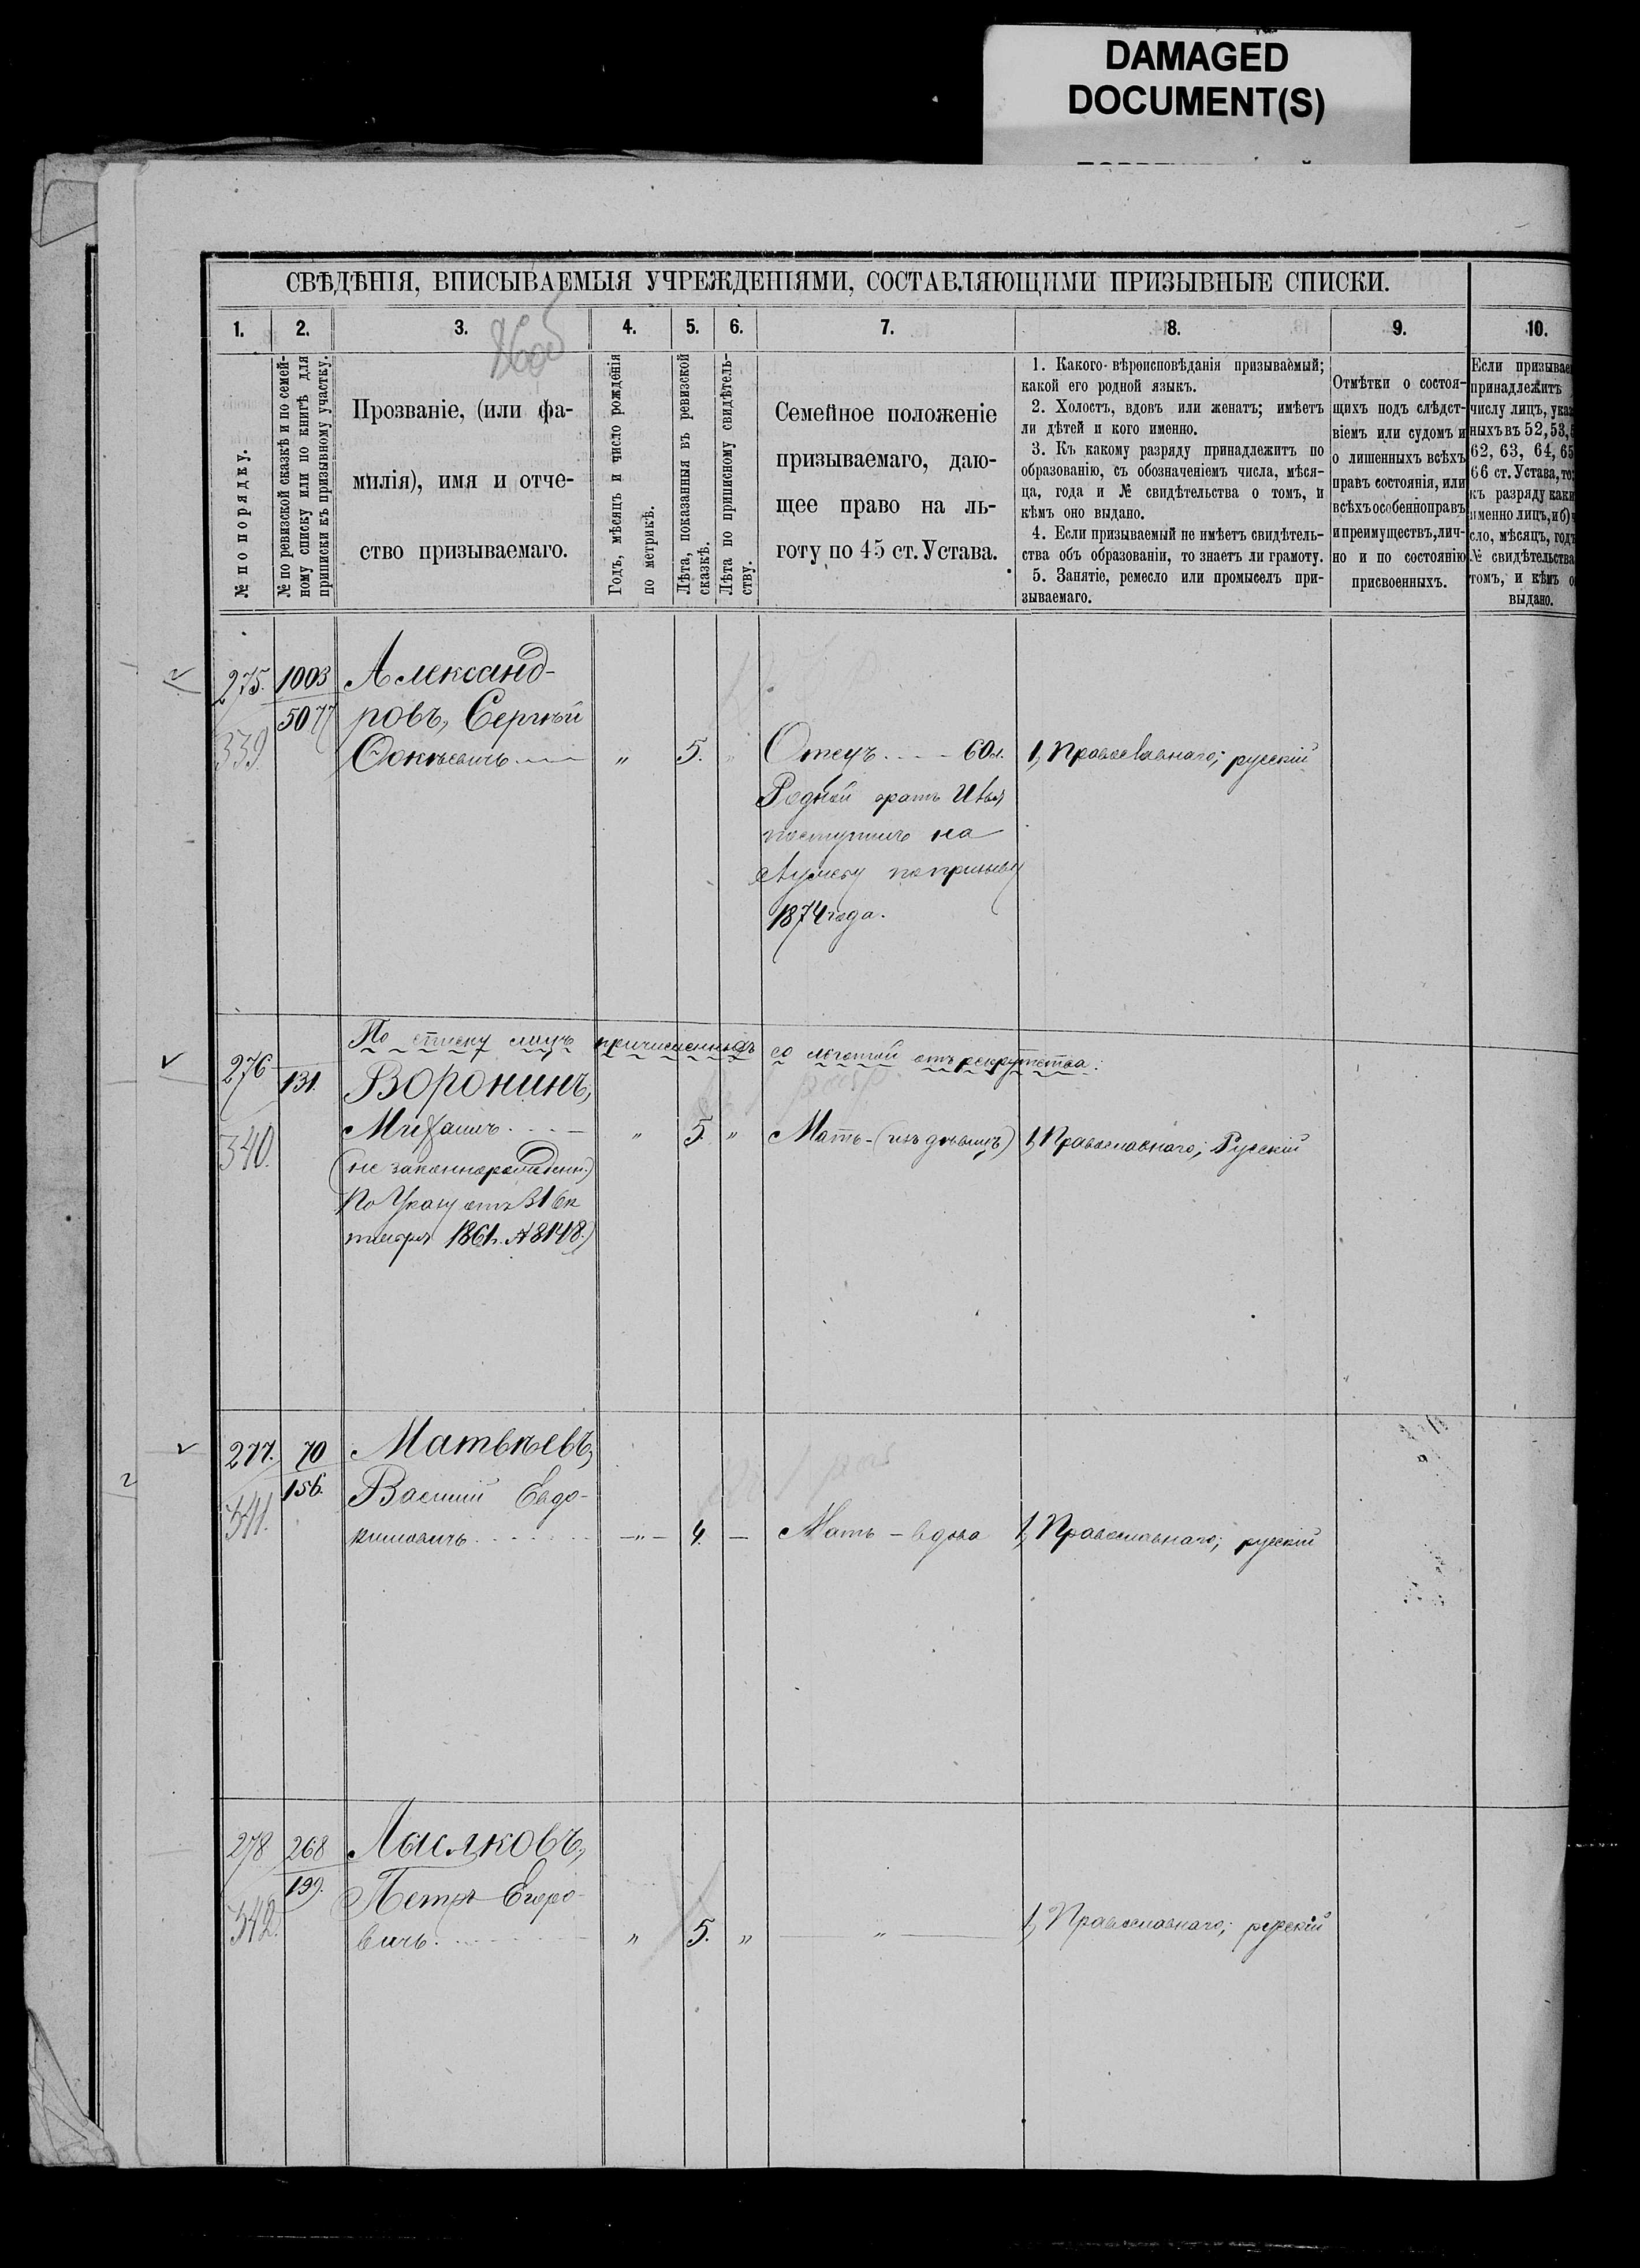 DAMAGED
DOCUMENT(S)
СВѢДѢНІЯ, ВПИСЫВАЕМЫЯ УЧРЕЖДЕНІЯМИ, СОСТАВЛЯЮЩИМИ ПРИЗЫВНЫЕ СПИСКИ.
1.
2.
3.
4.
5.
6.
7.
8.
9.
10.
№ по порядку.
№ по ревизской сказкѣ и по семей-
ному списку или по книгѣ для
приписки къ призывному участку.
Прозваніе, (или фа-
милія), имя и отче-
ство призываемаго.
Годъ, мѣсяцъ и число рожденія
по метрикѣ.
Лѣта, показанныя въ ревизской
сказкѣ.
Лѣта по приписному свидѣтель-
ству.
Семейное положеніе
призываемаго, даю-
щее право на ль-
готу по 45 ст. Устава.
1. Какого вѣроисповѣданія призываемый;
какой его родной языкъ.
2. Холостъ, вдовъ или женатъ; имѣетъ
ли дѣтей и кого именно.
3. Къ какому разряду принадлежитъ по
образованію, съ обозначеніемъ числа, мѣся-
ца, года и № свидѣтельства о томъ, и
кѣмъ оно выдано.
4. Если призываемый не имѣетъ свидѣтель-
ства объ образованіи, то знаетъ ли грамоту.
5. Занятіе, ремесло или промыселъ при-
зываемаго.
Отмѣтки о состоя-
щихъ подъ слѣдст-
віемъ или судомъ и
о лишенныхъ всѣхъ
правъ состоянія, или
всѣхъ особенно правъ
и преимуществъ, лич-
но и по состоянію
присвоенныхъ.
Если призывае
принадлежитъ
числу лицъ, указ
ныхъ въ 52, 53,
62, 63, 64, 65
66 ст. Устава, то:
къ разряду каки
именно лицъ, и б)
сло, мѣсяцъ, годъ
№ свидѣтельства
томъ, и кѣмъ о
выдано.
275. 1003 Александ-
5077 ровъ, Сергѣй
339. Фокѣевичъ „ 5. „ Отецъ 60 л. 1, Православнаго; русскій
Родной братъ
поступилъ на
службу по призыву
1874 года.
По списку лицъ причисленныхъ со льготой отъ рекрутства:
276 131. Воронинъ,
340. Михаилъ „ 5 „ Мать - (изъ дѣвицъ) 1, Православнаго; Русскій
(не законнорожденн.)
По Указу отъ 31 Ок
тября 1861 г. № 8148.)
277. 70 Матвѣевъ,
156. Василий Евдо-
341. кимовичъ - „ - 4. - Мать - вдова 1, Православнаго; русскій
278 268 Лысяковъ,
199. Петръ Егоро-
342. вичъ „ 5. „ „ 1, Православнаго; русскій